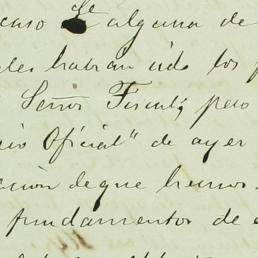 caso de alguna de
les habran sido los f
Señor Fiscal; pero
rio Oficial" de ayer
ción de que hemos
fundamentos de e